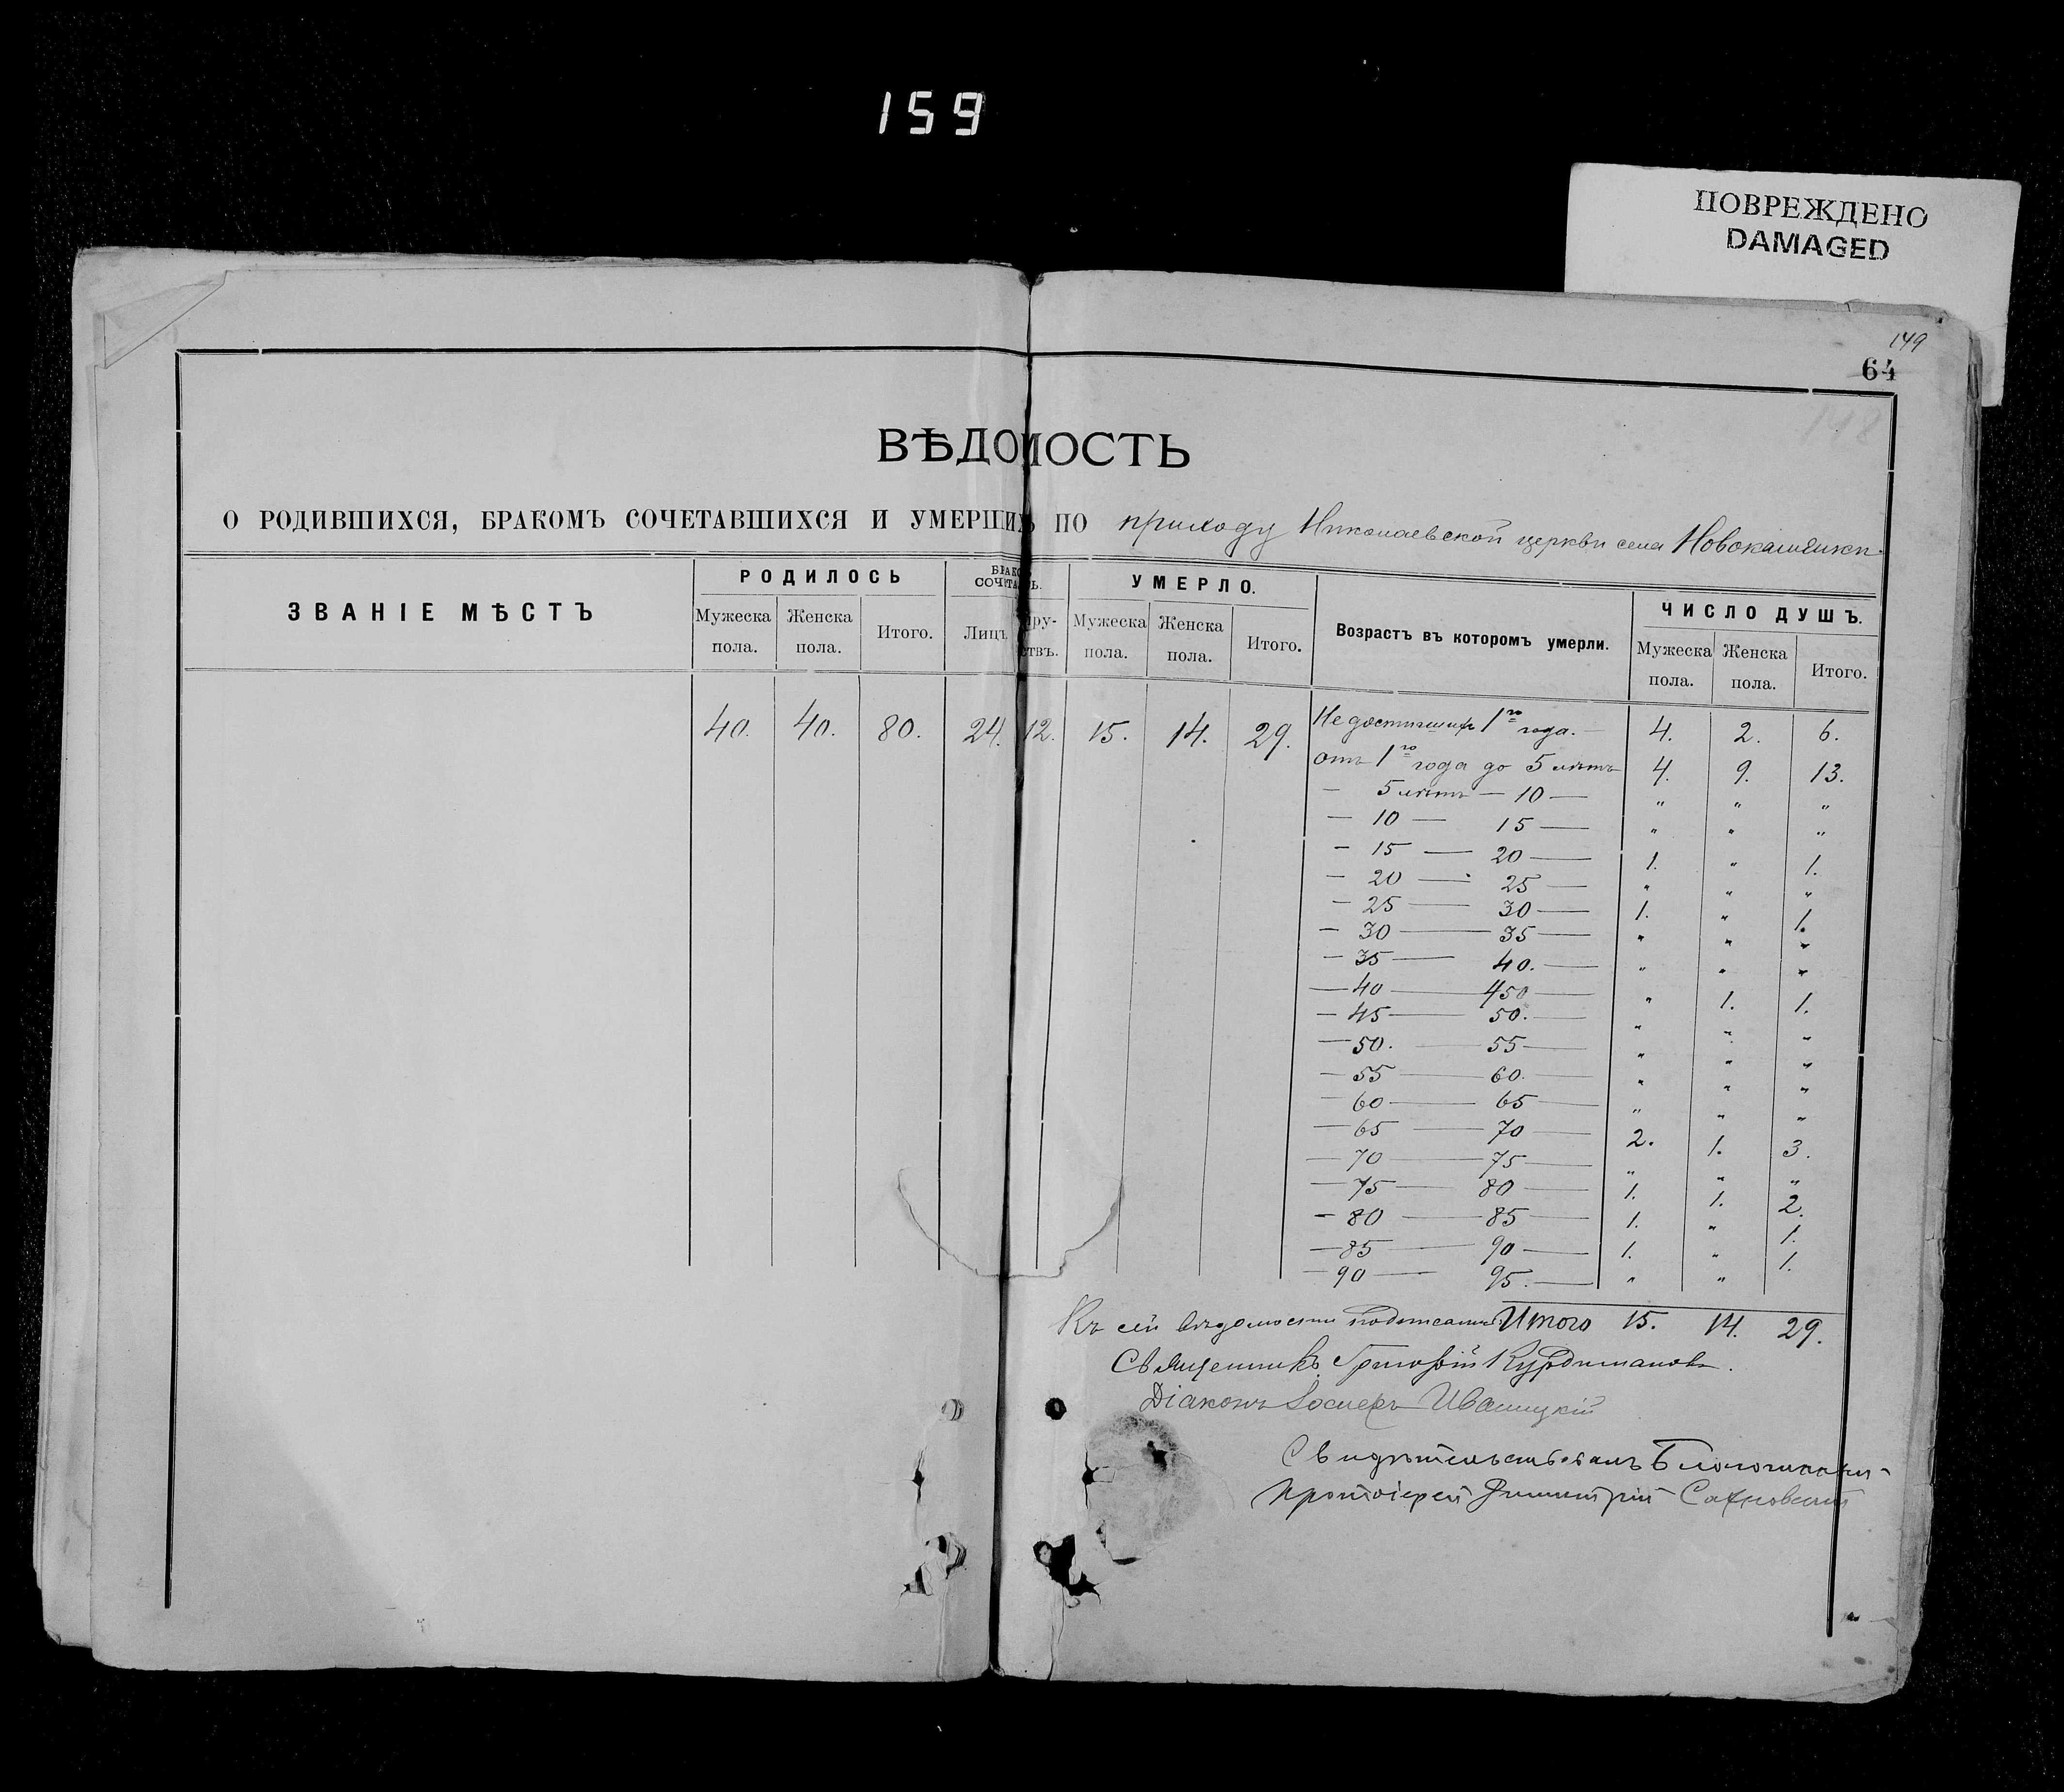 159
ПОВРЕЖДЕНО
DAMAGED
149
64
148
ВѢДОМОСТЬ
О РОДИВШИХСЯ, БРАКОМЪ СОЧЕТАВШИХСЯ И УМЕРШИХЪ ПО приходу Николаевской церкви села
ЗВАНІЕ МѢСТЪ
РОДИЛОСЬ
Мужеска пола. Женска пола. Итого.
БРАКОМЪ
СОЧЕТАЛ Ь.
Лицъ ру-
ствъ.
УМЕРЛО.
Мужеска пола. Женска пола. Итого.
Возрастъ въ которомъ умерли.
ЧИСЛО ДУШЪ.
Мужеска пола. Женска пола. Итого.
40. 40. 80. 24. 12. 15. 14. 29. Недостигших 1го года. — 4. 2. 6.
отъ 1го года до 5 лѣтъ 4. 9. 13.
— 5 лѣтъ — 10 — " " "
— 10 — 15 — " " "
— 15 — 20 — 1. " 1.
— 20 — 25 — " " "
— 25 — 30 — 1. " 1.
— 30 — 35 — " " "
— 35 — 40. — " " "
— 40 — 450 — " 1. 1.
— 45 — 50. — " " "
— 50. — 55 — " " "
— 55 — 60. — " " "
— 60 — 65 — " " "
— 65 — 70 — 2. 1. 3.
— 70 — 75 — " " "
— 75 — 80 — 1. 1. 2.
— 80 — 85 — 1. " 1.
— 85 — 90 — 1. " 1.
— 90 — 95. — " "
Къ сей вѣдомости Итого 15. 14. 29.
Священникъ Григорій Курдимановъ.
Діаконъ Іосифъ Иваницкій
Свидѣтельствовалъ Благочинный
Протоіерей Димитрій Сахновскій